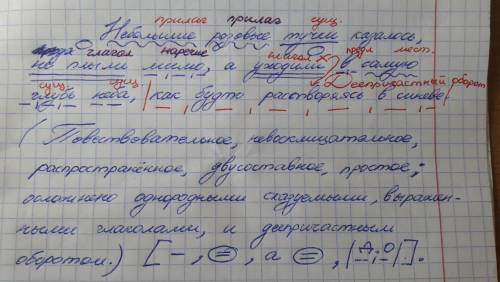 прилаг прилаг сущ.
Небольшие розовые тучки казалось,
глагол наречие глагол предл мест.
не плыли мимо, а уходили в самую
сущ. сущ. Деепричастный оборот
глубь неба, как будто растворяясь в синеве.
(Повествовательное, невосклицательное,
распространённое, двусоставное, простое;
осложнено однородными сказуемыми, выражен-
ными глаголами, и деепричастным
оборотом.) [ — , = , а = , |Д.О|].